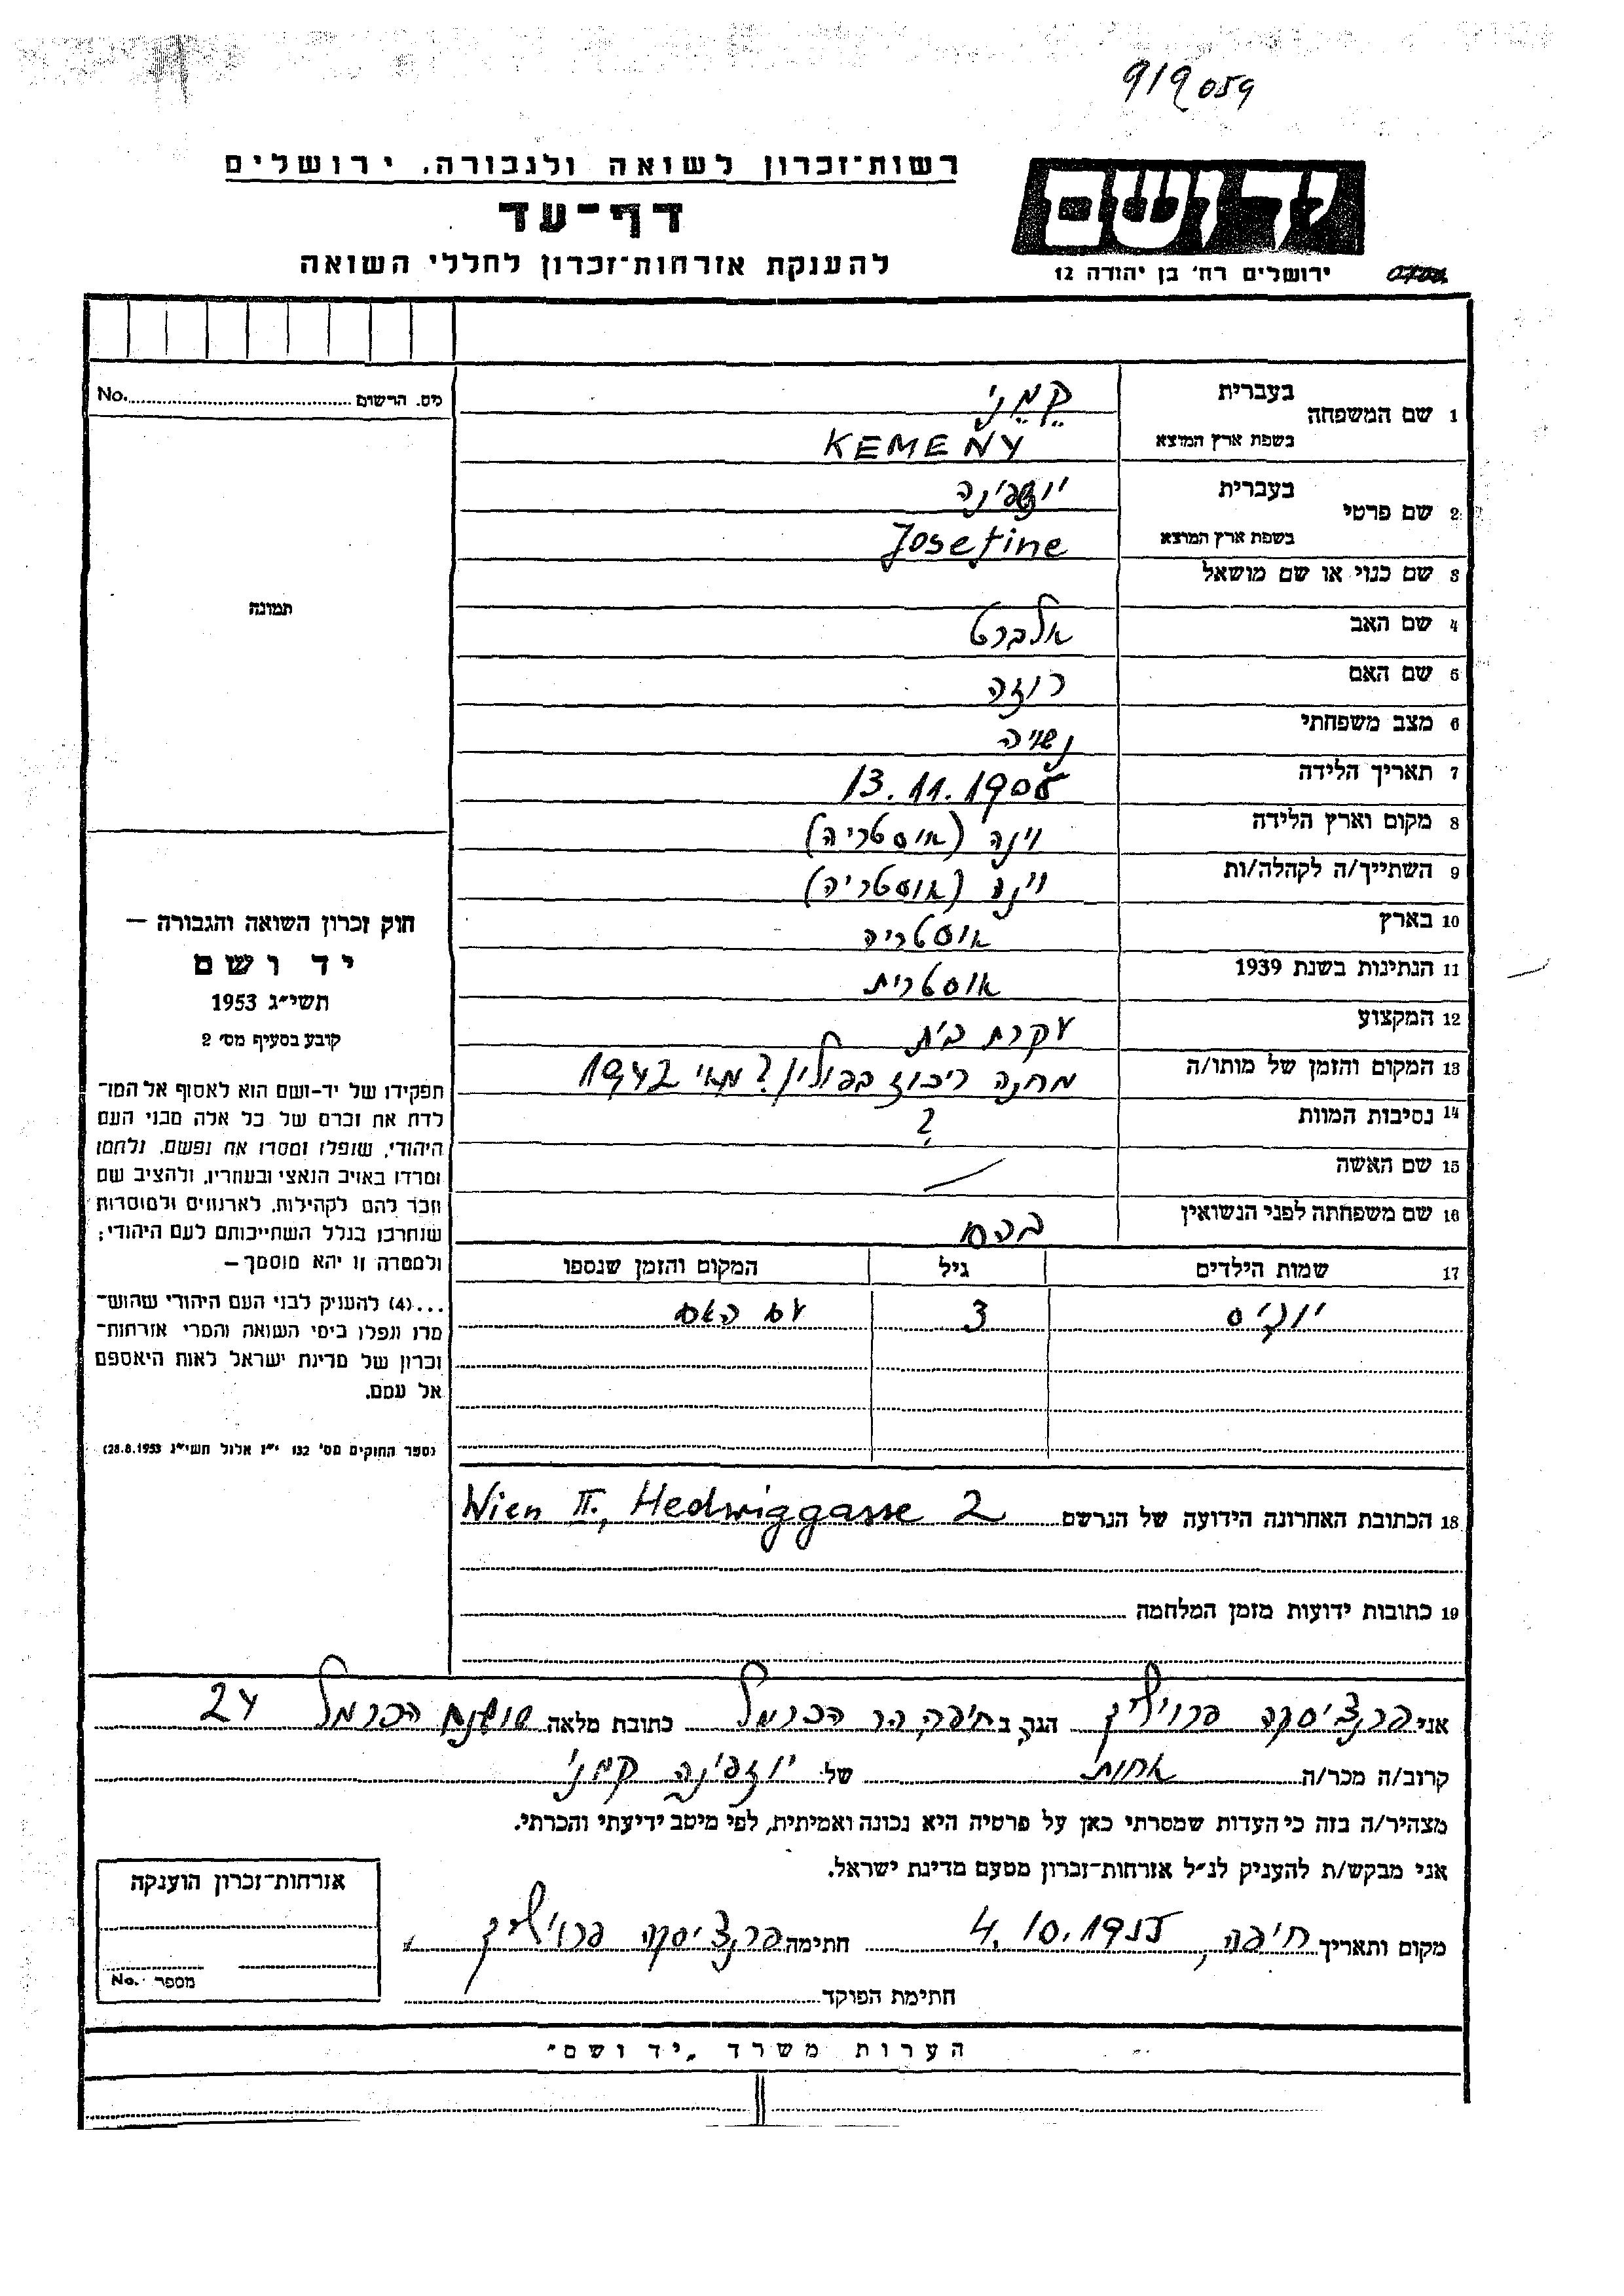 919059
רשות־זכרון לשואה ולגבורה, ירושלים
דף־עד
להענקת אזרחות־זכרון לחללי השואה
יד ושם
ירושלים רח' בן יהודה 12
מס. הרשום No.
תמונה
1 שם המשפחה בעברית קֶמֶנִי
בשפת ארץ המוצא KEMENY
2 שם פרטי בעברית יוזפינה
בשפת ארץ המוצא Josefine
3 שם כנוי או שם מושאל
4 שם האב אלברט
5 שם האם רוזה
6 מצב משפחתי נשויה
7 תאריך הלידה 13.11.1908
8 מקום וארץ הלידה וינה (אוסטריה)
9 השתייך/ה לקהלה/ות וינה (אוסטריה)
10 בארץ אוסטריה
11 הנתינות בשנת 1939 אוסטרית
12 המקצוע עקרת בית
13 המקום והזמן של מותו/ה מחנה ריכוז בפולין? מאי 1942
14 נסיבות המוות ?
15 שם האשה —
16 שם משפחתה לפני הנשואין
17 שמות הילדים גיל המקום והזמן שנספו
3 עם האם
18 הכתובת האחרונה הידועה של הנרשם Wien II., Hedwiggasse 2
19 כתובות ידועות מזמן המלחמה
חוק זכרון השואה והגבורה —
יד ושם
תשי״ג 1953
קובע בסעיף מס' 2
תפקידו של יד-ושם הוא לאסוף אל המו־
לדת את זכרם של כל אלה מבני העם
היהודי, שנפלו ומסרו את נפשם, נלחמו
ומרדו באויב הנאצי ובעוזריו, ולהציב שם
וזכר להם לקהילות, לארגונים ולמוסדות
שנחרבו בגלל השתייכותם לעם היהודי;
ולמטרה זו יהא מוסמך —
...(4) להעניק לבני העם היהודי שהוש־
מדו ונפלו בימי השואה והמרי אזרחות־
זכרון של מדינת ישראל לאות היאספם
אל עמם.
(ספר החוקים מס' 132 י״ז אלול תשי״ג 28.8.1953)
אני פרנציסקה פרוינליך הגר ב חיפה, הר הכרמל כתובת מלאה שושנת הכרמל 24
קרוב/ה מכר/ה אחות של יוזפינה קמני
מצהיר/ה בזה כי העדות שמסרתי כאן על פרטיה היא נכונה ואמיתית, לפי מיטב ידיעתי והכרתי.
אני מבקש/ת להעניק לנ״ל אזרחות־זכרון מטעם מדינת ישראל.
מקום ותאריך חיפה, 4.10.1955 חתימה פרנציסקה פרוינליך
חתימת הפוקד
אזרחות־זכרון הוענקה
מספר No.
הערות משרד „יד ושם״